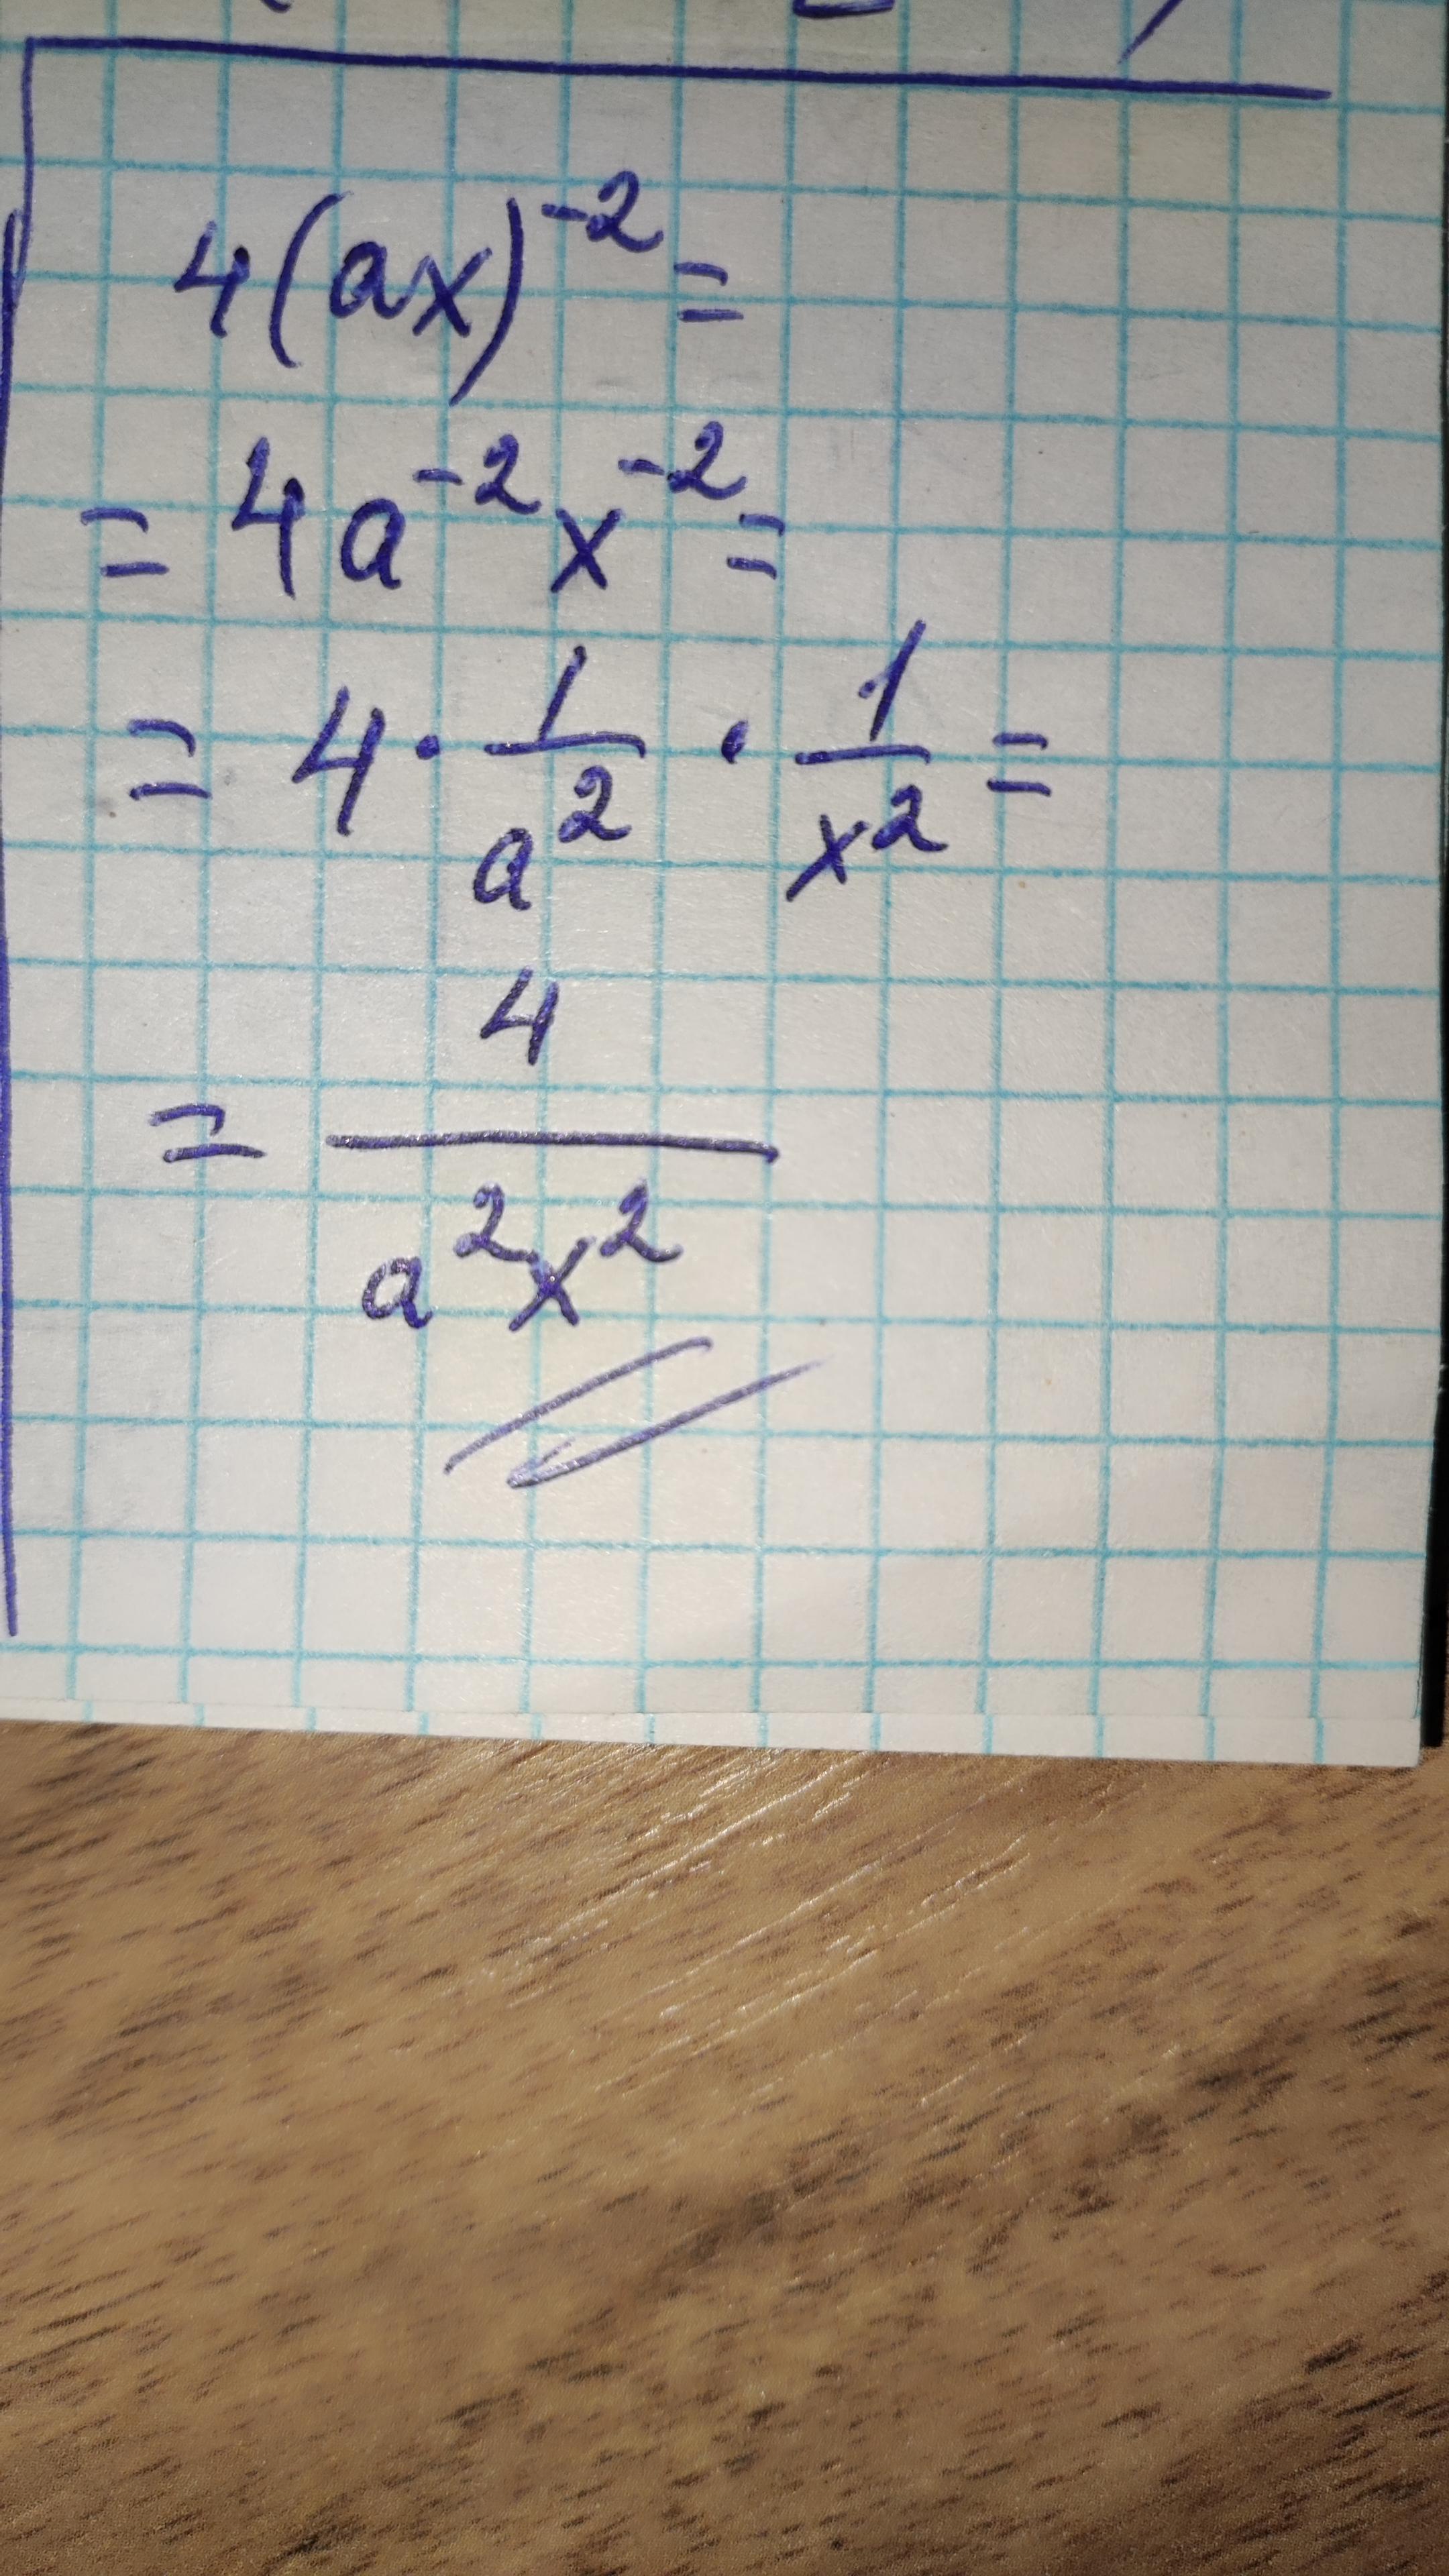 4(ax)⁻² =
= 4a⁻²x⁻² =
= 4 · 1/a² · 1/x² =
= 4/a²x²